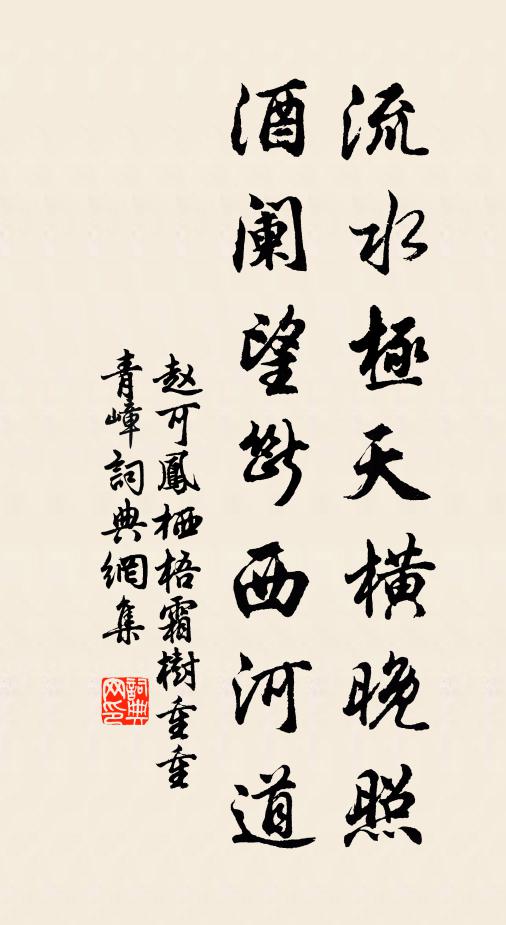 流水極天橫晚照
酒阑望斷西河道
赵可鳳栖梧霜樹重重
青嶂詞典網集
詞典
网印